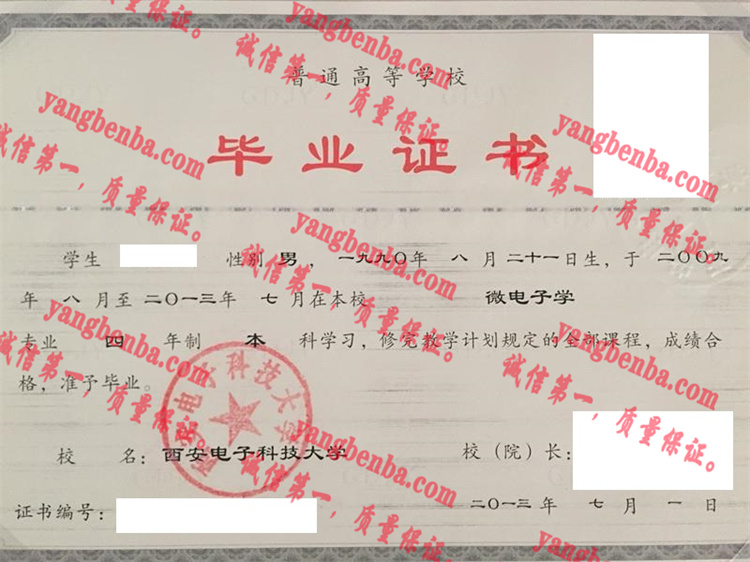 普通高等学校
毕业证书
学生 性别 男，一九九〇年 八 月二十一日生，于 二〇〇九
年 八 月至 二〇一三年 七 月在本校 微电子学
专业 四 年制 本 科学习，修完教学计划规定的全部课程，成绩合
格，准予毕业。
校 名：西安电子科技大学 校（院）长：
证书编号： 二〇一三年 七 月 一 日
西安电子科技大学
yangbenba.com
诚信第一，质量保证。
yangbenba.com
诚信第一，质量保证。
yangbenba.com
诚信第一，质量保证。
yangbenba.com
诚信第一，质量保证。
yangbenba.com
诚信第一，质量保证。
yangbenba.com
诚信第一，质量保证。
yangbenba.com
诚信第一，质量保证。
yangbenba.com
诚信第一，质量保证。
yangbenba.com